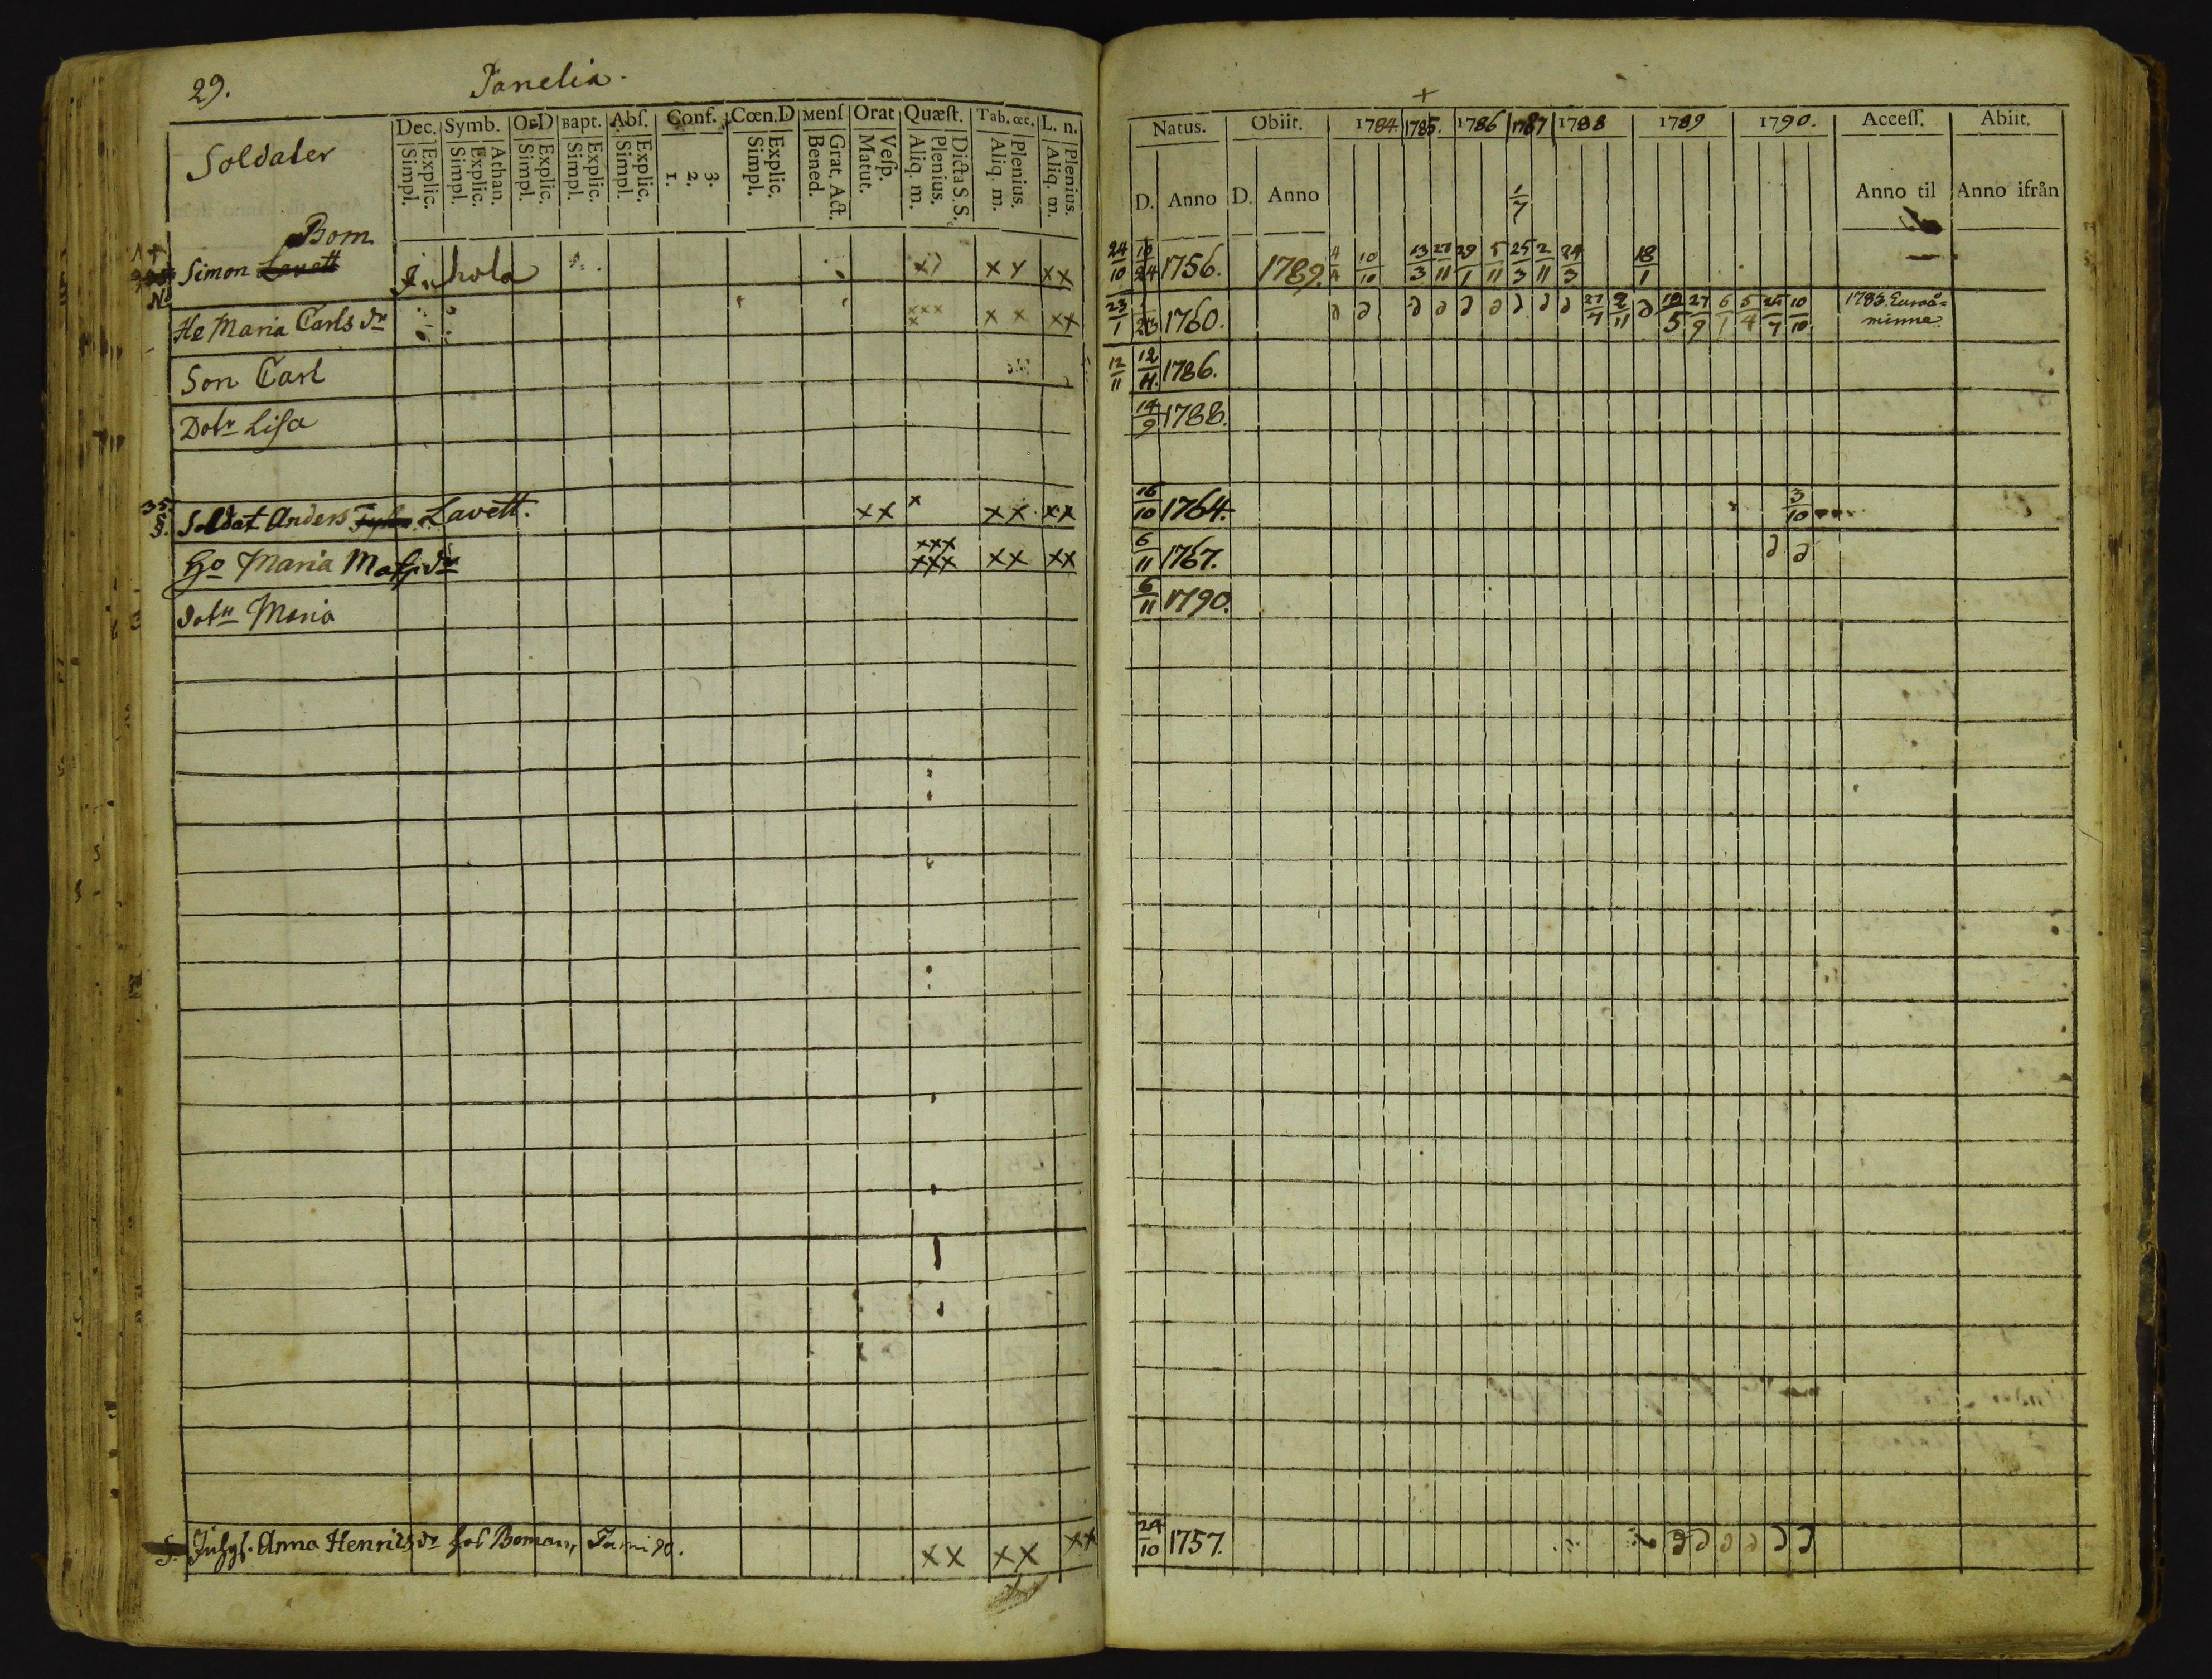 29. Tanelia.
Soldater
Dec. Symb. Or D Bapt. Abſ. Conf. Cœn. D Menſ Orat Quæſt. Tab. œc. L. n.
Explic. Simpl. Athan. Explic. Simpl. Explic. Simpl. Explic. Simpl. Explic. Simpl. 1. 2. 3. Explic. Simpl. Grat. Act. Bened. Veſp. Matut. Dicta S. S. Plenius. Aliq. m. Plenius. Aliq. m. Plenius. Aliq. m.
Bom
Simon Lavett xx xx
He Maria Carls dr xxx x x x xx
Son Carl
Dotr Liſa
35.
Soldat Anders Lavett. xx x xx xx
Ho Maria Mattsdr xxx xxx xx xx
dotr Maria
Anna Henricsdr hos Boman xx xx xx
+
Natus. Obiit. 1784 1785. 1786 1787 1788 1789 1790. Acceſſ. Abiit.
D. Anno D. Anno 1/7 Anno til Anno ifrån
24/10 1756. 1789. 4/4 10/10 13/3 27/11 29/1 5/11 25/3 2/11 24/3 18/1
23/1 1760. 27/7 2/11 27/9 6/1 5/4 25/7 10/10 1783. Euraå-
minne
12/11 12/11 1786.
14/9 1788.
16/10 1764. 3/10
6/11 1767.
6/11 1790.
24/10 1757.